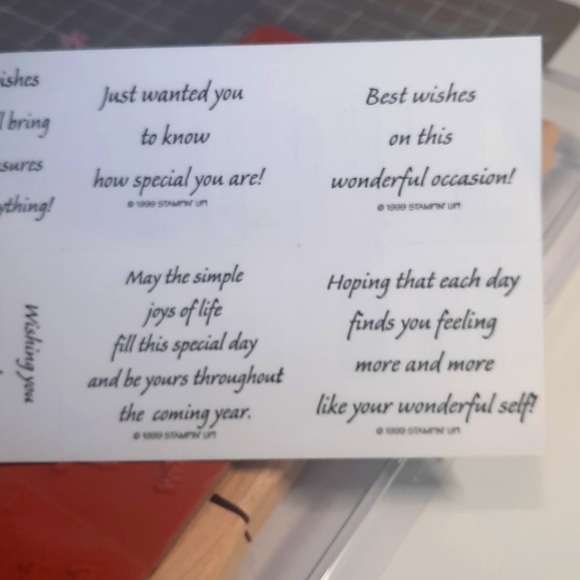 ishes
l bring
sures
ything!
Just wanted you
to know
how special you are!
© 1999 STAMPIN' UP!
Best wishes
on this
wonderful occasion!
© 1999 STAMPIN' UP!
Wishing you
May the simple
joys of life
fill this special day
and be yours throughout
the coming year.
© 1999 STAMPIN' UP!
Hoping that each day
finds you feeling
more and more
like your wonderful self!
© 1999 STAMPIN' UP!